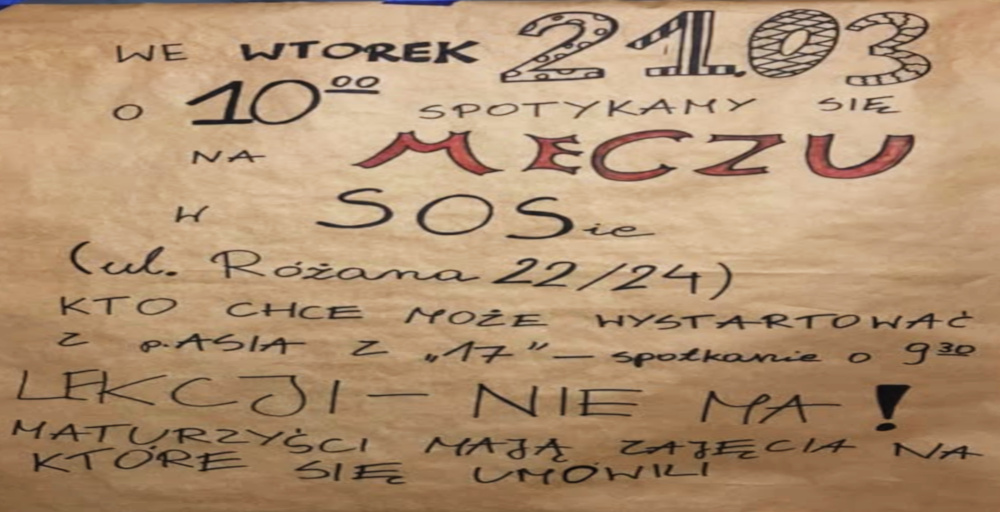 WE WTOREK 21.03
O 10⁰⁰ SPOTYKAMY SIĘ
NA MECZU
W SOSie
(ul. Różana 22/24)
KTO CHCE MOŻE WYSTARTOWAĆ
Z p.ASIĄ Z „17” – spotkanie o 9³⁰
LEKCJI – NIE MA!
MATURZYŚCI MAJĄ ZAJĘCIA NA
KTÓRE SIĘ UMÓWILI